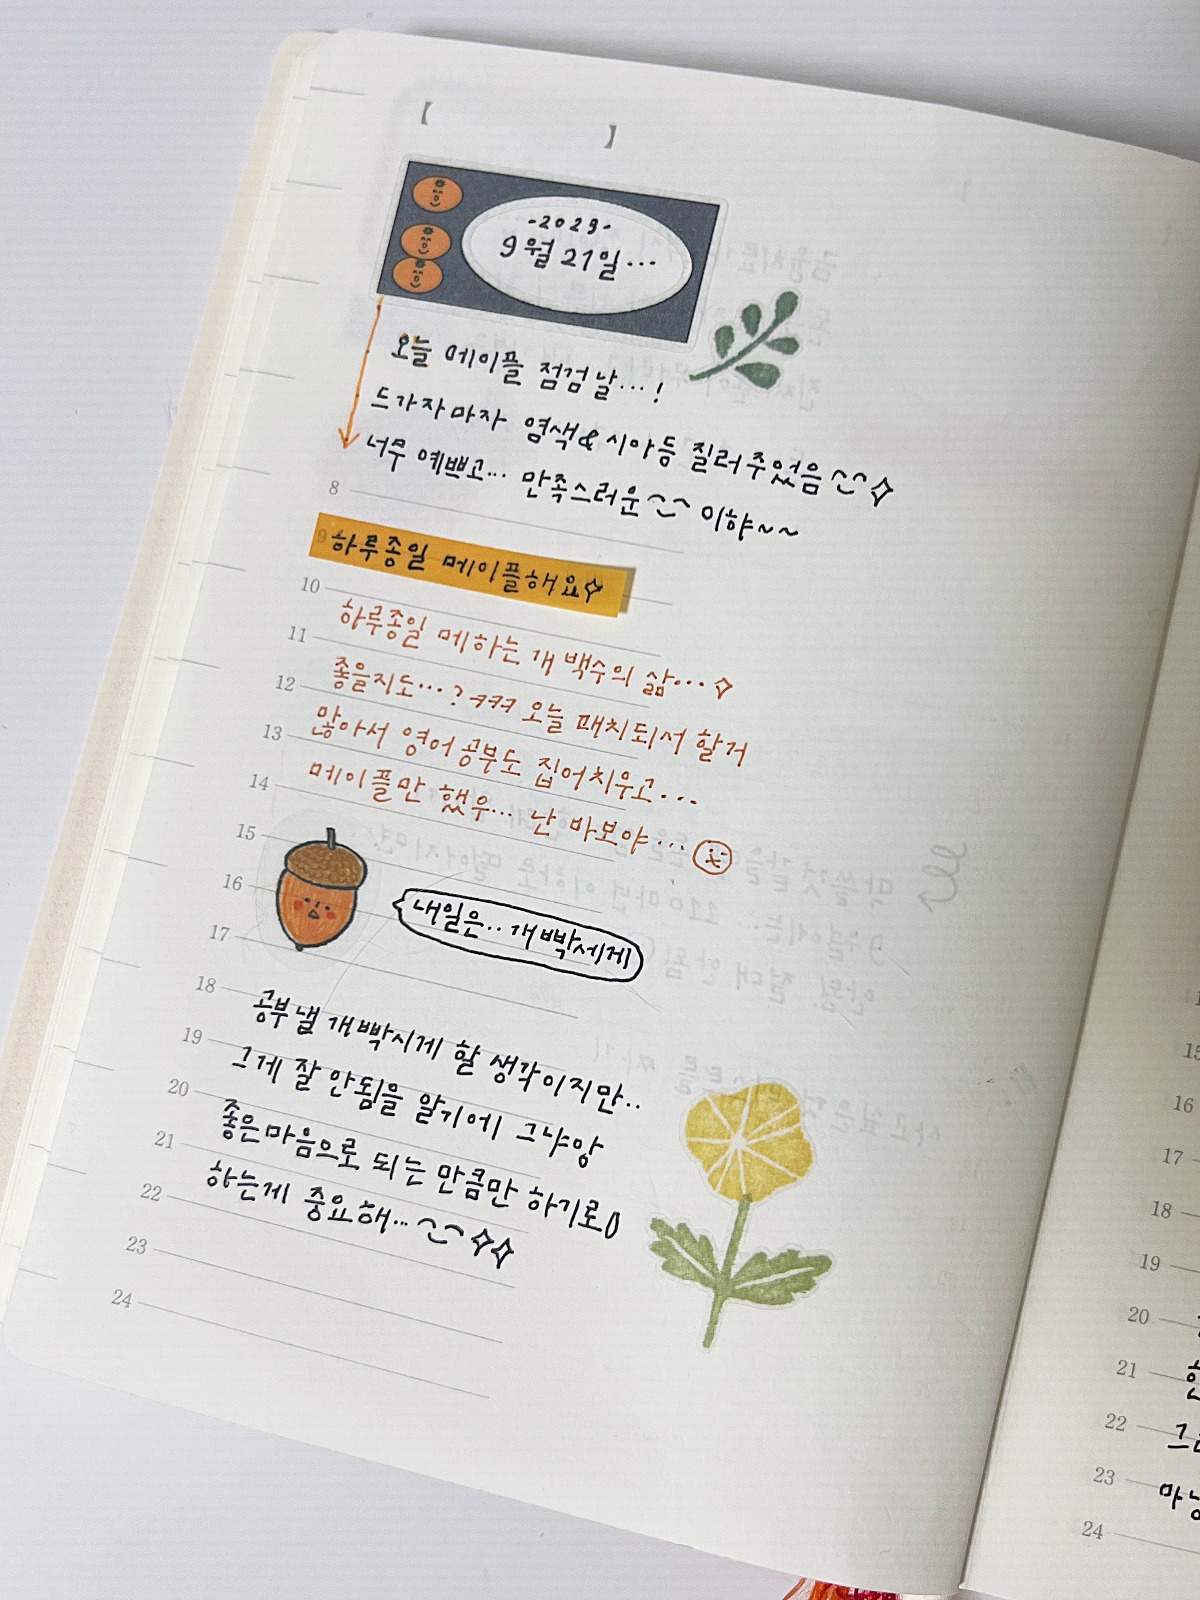 【 】
-2023-
9월 21일...
오늘 메이플 점검날...!
드가자마자 염색&시아등 질러주었음
너무 예쁘고... 만족스러운 이햐~~
8
9 하루종일 메이플해요
10
하루종일 메하는 개 백수의 삶...
11
좋을지도...? ㅋㅋㅋ 오늘 패치되서 할거
12
많아서 영어 공부도 집어치우고...
13
메이플만 했우... 난 바보야...
14
15
16
내일은.. 개빡세게
17
18
공부 낼 개빡시게 할 생각이지만..
19
그게 잘 안됨을 알기에 그냐앙
20
좋은마음으로 되는 만큼만 하기로
21
하는게 중요해...
22
23
24
15
16
17
18
19
20
21
22
23
24